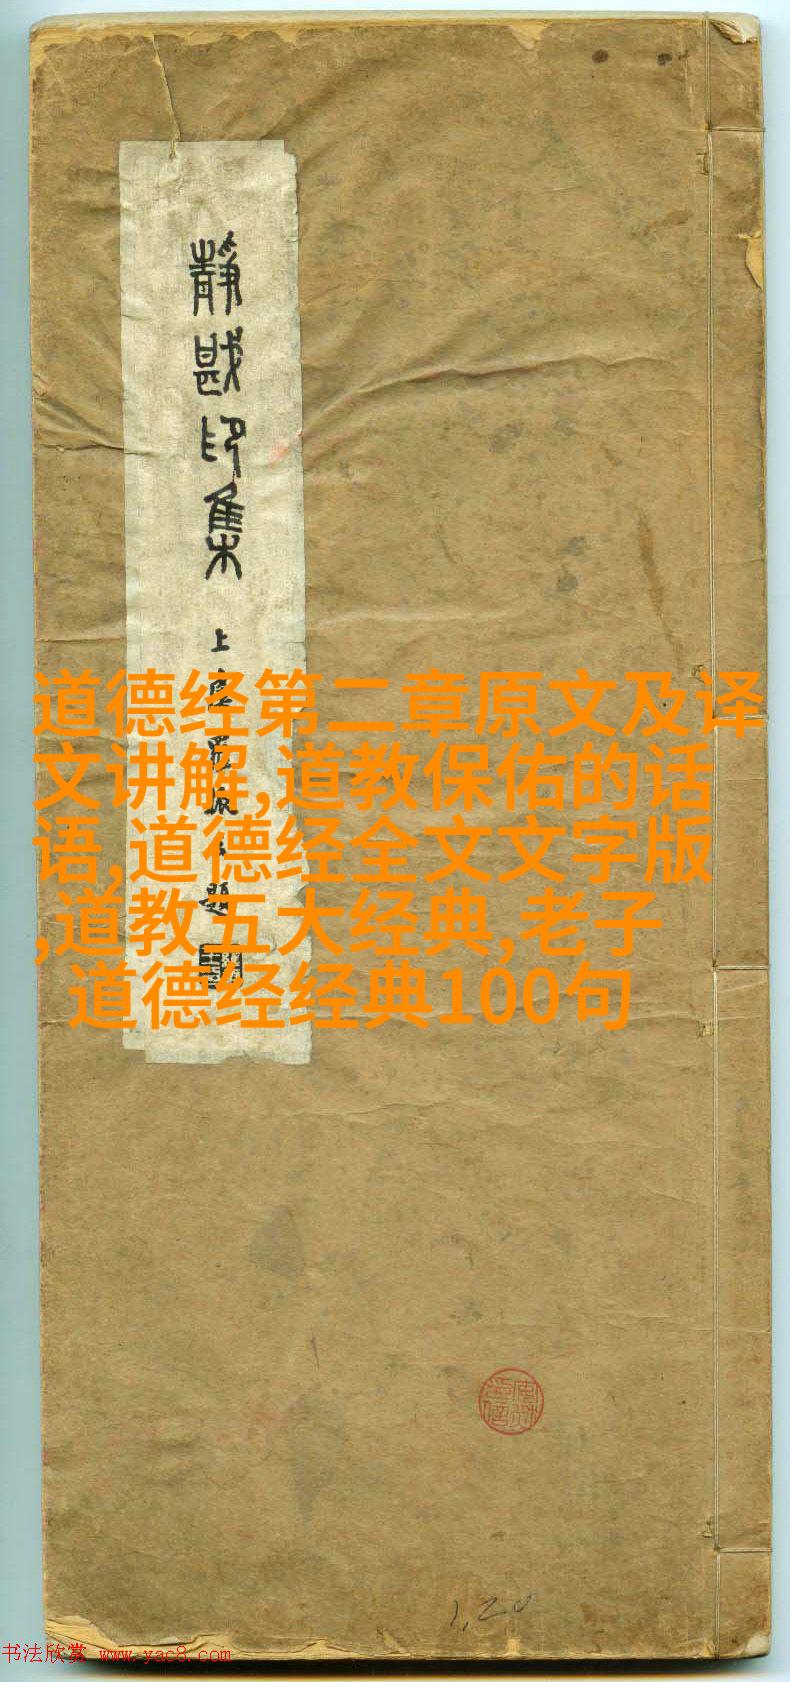 静戡印集
上虞罗振玉题
道德经第二章原文及译
文讲解,道教保佑的话
语,道德经全文文字版
,道教五大经典,老子
道德经经典100句
1,20
书法欣赏 www.yac8.com